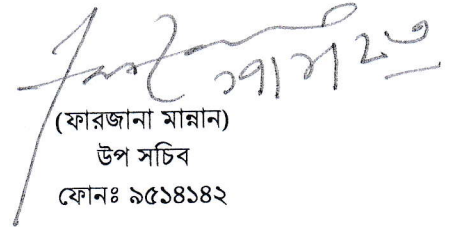 (ফারজানা মান্নান)
উপ সচিব
ফোনঃ ৯৫১৪১৪২